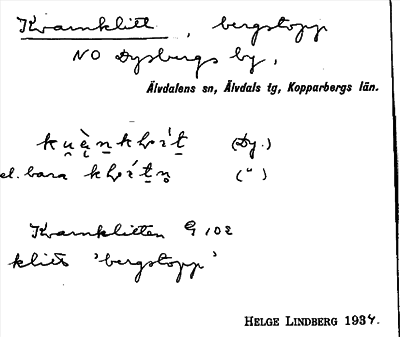 Kvarnklitt, bergstopp
NO Dysbergs by,
Älvdalens sn, Älvdals tg, Kopparbergs län.
(Dy.)
el. bara
(")
Kvarnklitten G 102
klitt 'bergstopp'
HELGE LINDBERG 1934.